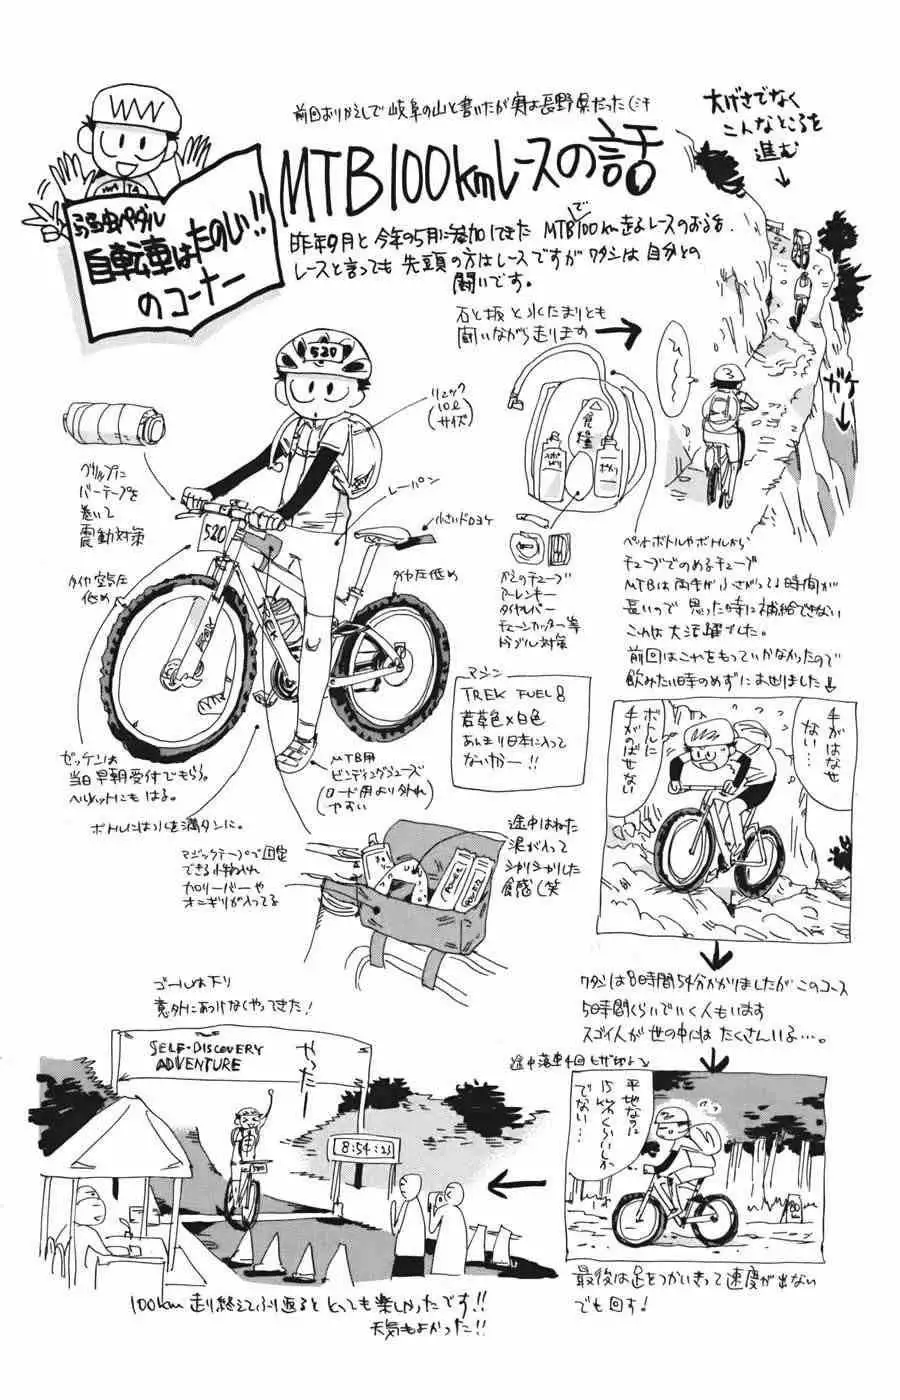 前回おりかえしで岐阜の山と書いたが実は長野県だった(汗
MTB100kmレースの話
弱虫ペダル
自転車はたのしい!!
のコーナー
昨年9月と今年の5月に参加してきた MTBで100km走るレースのお話。
レースと言っても先頭の方はレースですがワタシは自分との
闘いです。
石と坂と水たまりとも
闘いながら走ります
大げさでなく
こんなところを
進む
ガケ
ひ〜〜
520
リュック
10ℓ
サイズ
グリップに
バーテープを
巻いて
震動対策
レーパン
小さいドロヨケ
520
タイヤ空気圧
低め
タイヤ圧低め
TREK
ペットボトルやボトルから
チューブでのめるチューブ
MTBは両手がふさがってる時間が
長いので思った時に補給できない
これは大活躍でした。
前回はこれをもっていかなかったので
飲みたい時のめずにあせりました
かえのチューブ
アーレンキー
タイヤレバー
チェーンカッター等
トラブル対策
マシン
TREK FUEL 8
若草色×白色
あんまり日本に入って
ないかー!!
手がはなせ
ない…
ボトルに
手がのばせない
ゼッケンは
当日早朝受付でもらう。
ヘルメットにもはる。
MTB用
ビンディングシューズ
(ロード用より外れ
やすい)
ボトルには水を満タンに。
マジックテープで固定
できる小物入れ
カロリーバーや
オニギリが入ってる
途中はねた
泥が入って
シャリシャリした
食感(笑
ワタシは8時間54分かかりましたがこのコース
5時間くらいでいく人もいます
スゴイ人が世の中にはたくさんいる…。
途中落車1回
平地なのに
15kmくらいしか
でない…
最後は足をつかいきって速度が出ない
でも回す!
ゴールは下り
意外にあっけなくやってきた!
SELF-DISCOVERY
ADVENTURE
やったー
8:54:23
520
100km走り終えてふり返るととっても楽しかったです!!
天気もよかった!!